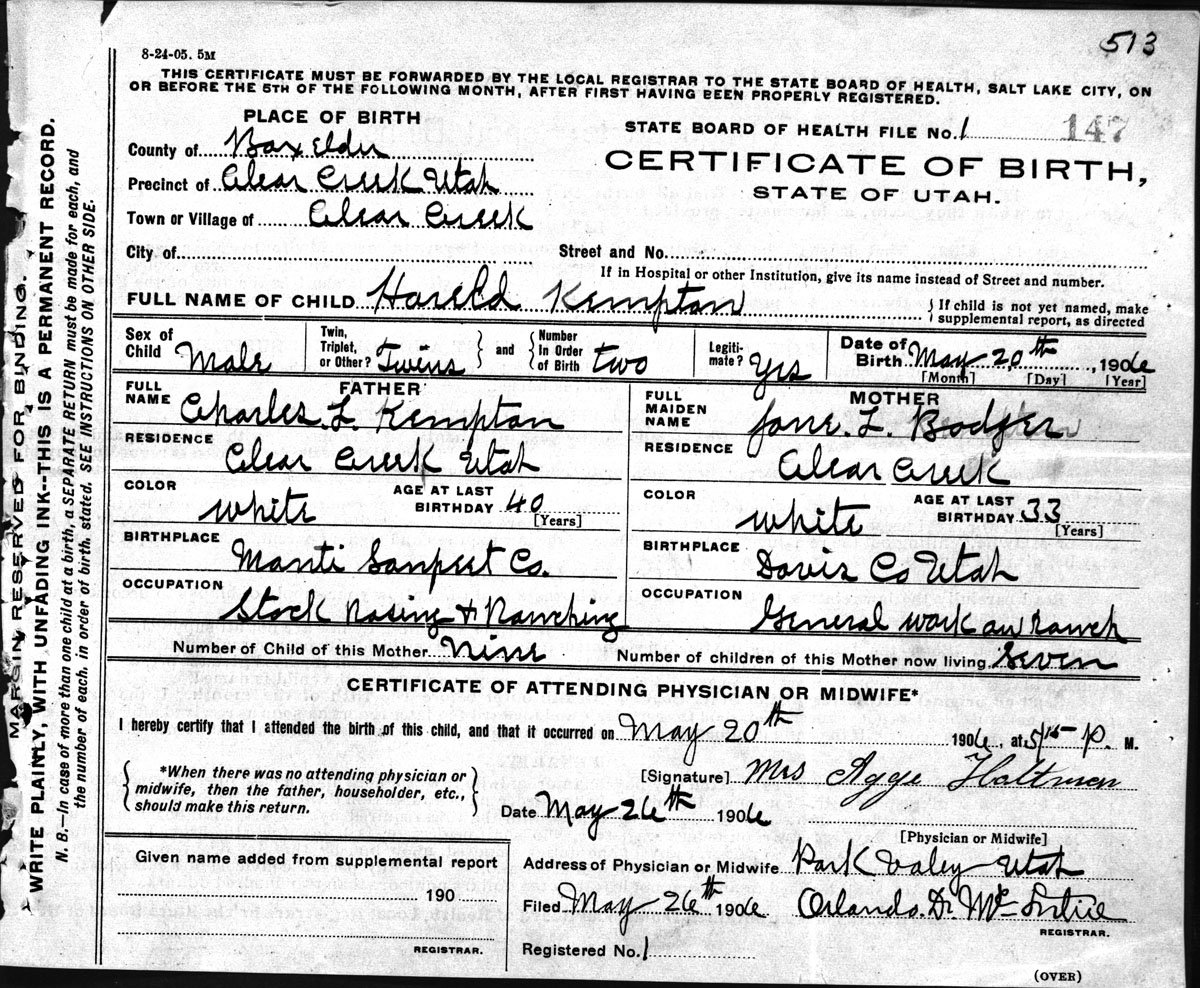 513
8-24-05. 5M
THIS CERTIFICATE MUST BE FORWARDED BY THE LOCAL REGISTRAR TO THE STATE BOARD OF HEALTH, SALT LAKE CITY, ON
OR BEFORE THE 5TH OF THE FOLLOWING MONTH, AFTER FIRST HAVING BEEN PROPERLY REGISTERED.
PLACE OF BIRTH
STATE BOARD OF HEALTH FILE No. 1 147
County of Box Elder
CERTIFICATE OF BIRTH,
Precinct of Clear Creek Utah
STATE OF UTAH.
Town or Village of Clear Creek
City of
Street and No.
If in Hospital or other Institution, give its name instead of Street and number.
FULL NAME OF CHILD Harold Kempton
{ If child is not yet named, make supplemental report, as directed
Sex of Child Male
Twin, Triplet, or Other? Twins } and { Number In Order of Birth two
Legitimate? Yes
Date of Birth May 20th, 1906
[Month] [Day] [Year]
FATHER
FULL NAME Charles L. Kempton
RESIDENCE
Clear Creek Utah
COLOR white AGE AT LAST BIRTHDAY 40
[Years]
BIRTHPLACE
Manti Sanpeet Co.
OCCUPATION
Stock Rasing & Ranching
MOTHER
FULL MAIDEN NAME Jane. L. Badger
RESIDENCE
Clear Creek
COLOR white AGE AT LAST BIRTHDAY 33
[Years]
BIRTHPLACE
Davis Co Utah
OCCUPATION
General work on ranch
Number of Child of this Mother Nine Number of children of this Mother now living Seven
CERTIFICATE OF ATTENDING PHYSICIAN OR MIDWIFE*
I hereby certify that I attended the birth of this child, and that it occurred on May 20th 1906, at 5 15 P. M.
{ *When there was no attending physician or midwife, then the father, householder, etc., should make this return. }
[Signature] Mrs Agge
Date May 26th 1906
[Physician or Midwife]
Given name added from supplemental report
190
REGISTRAR.
Address of Physician or Midwife Park Valey Utah
Filed May 26th 1906 Orlando. D.
REGISTRAR.
Registered No. 1
(OVER)
MARGIN RESERVED FOR BINDING.
WRITE PLAINLY, WITH UNFADING INK--THIS IS A PERMANENT RECORD.
N. B.—In case of more than one child at a birth, a SEPARATE RETURN must be made for each, and
the number of each, in order of birth, stated. SEE INSTRUCTIONS ON OTHER SIDE.